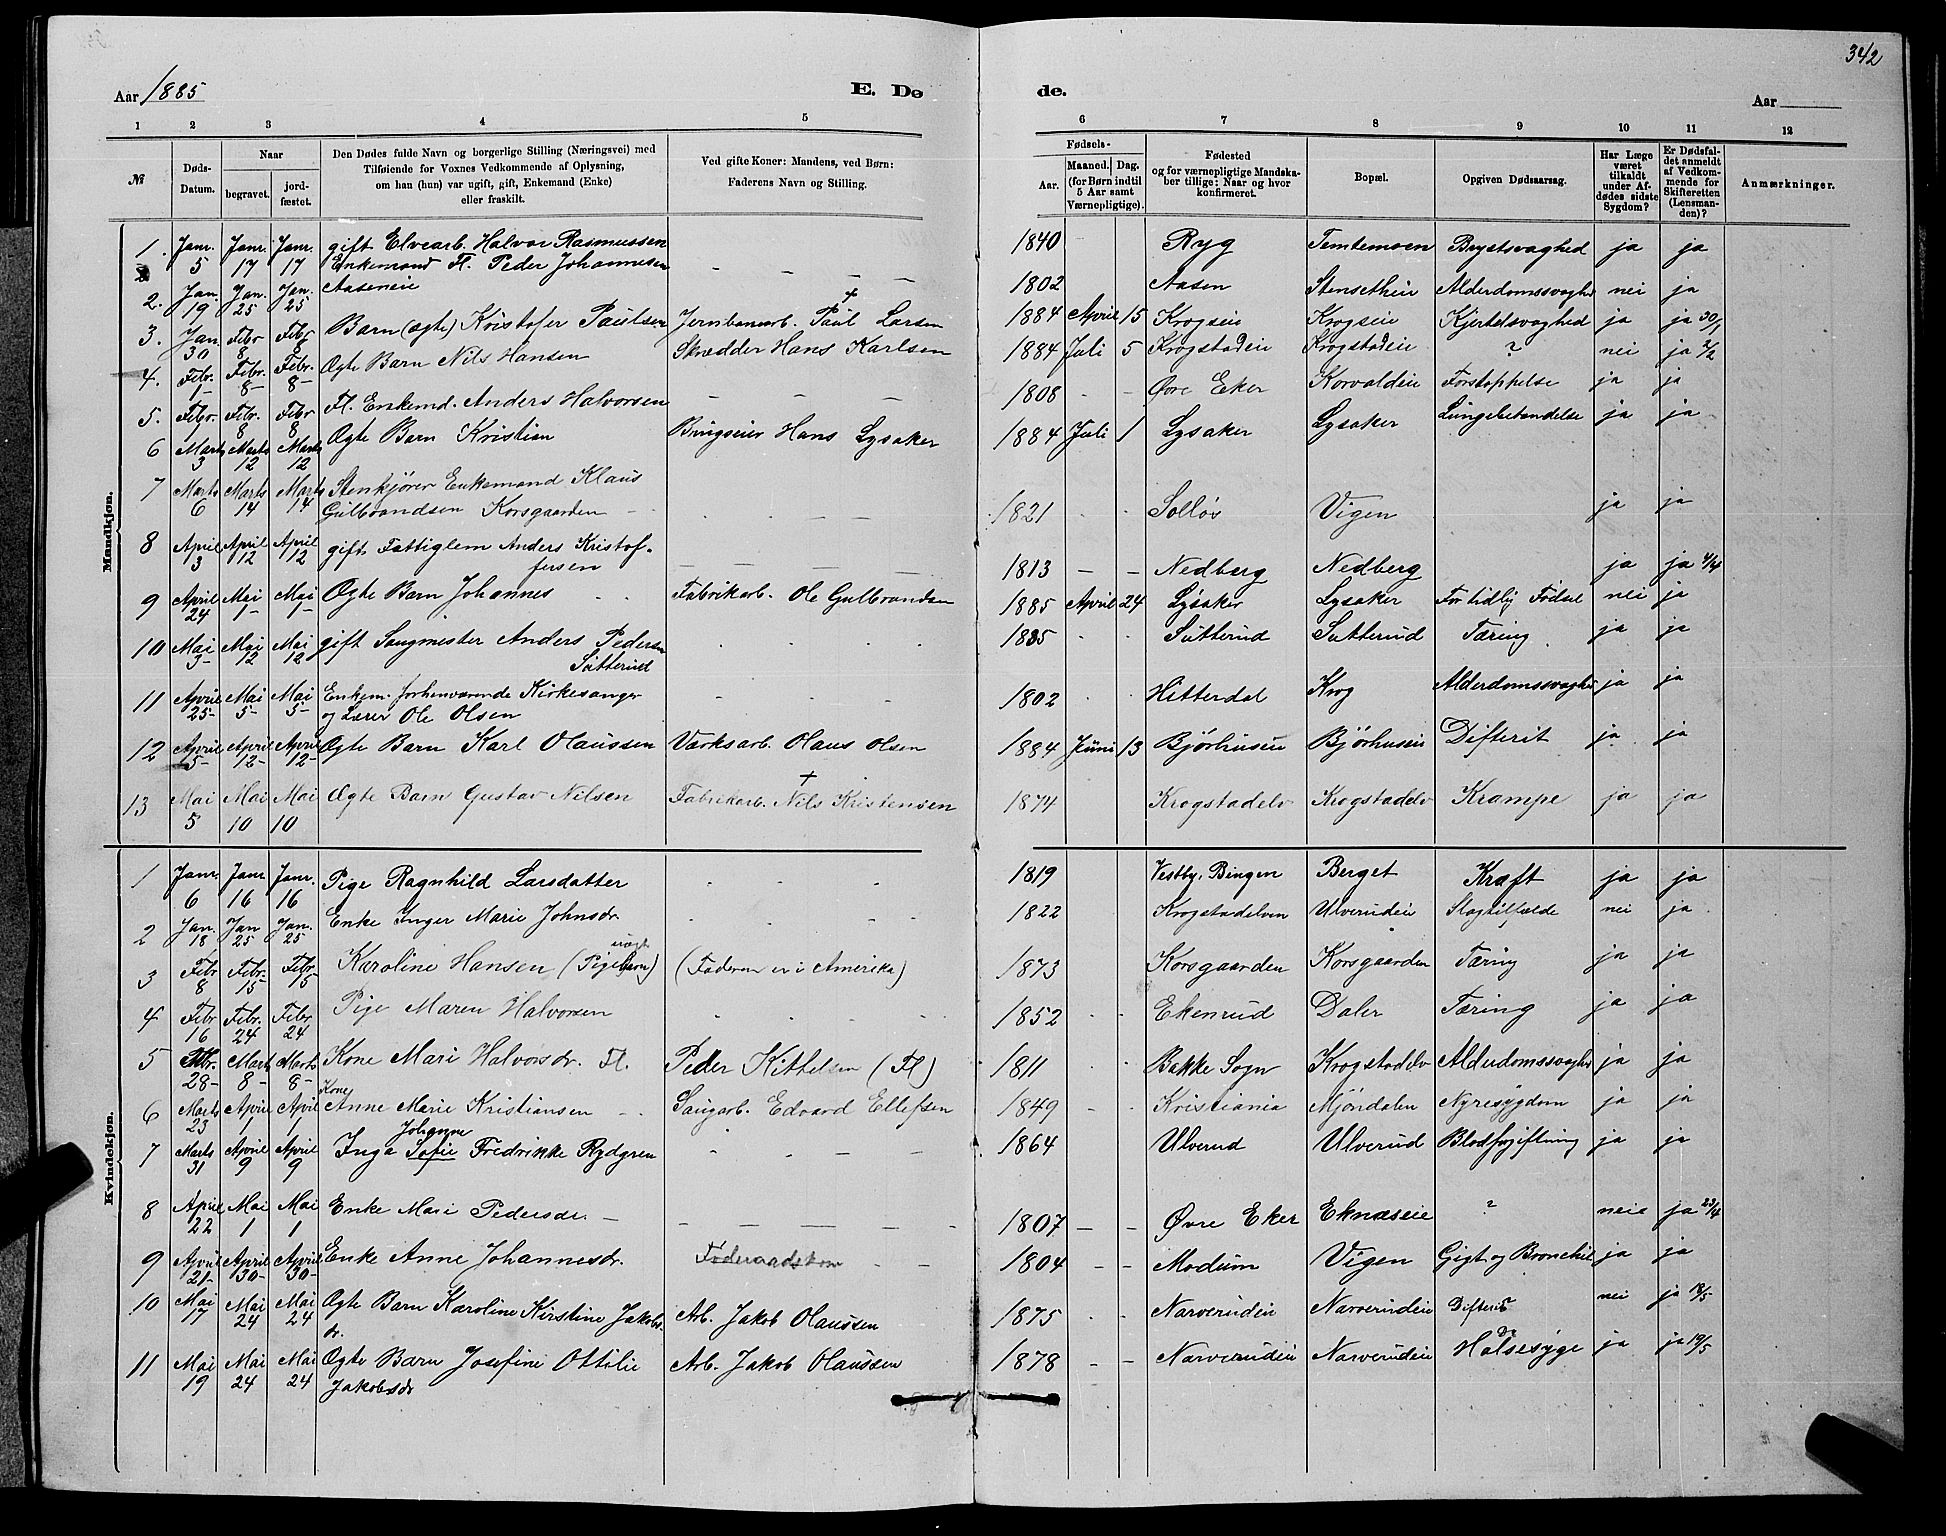 342
Aar 1885
E. Dø
de.
Aar
1 2 3 4 5 6 7 8 9 10 11 12
№
Døds-
Datum.
Naar
begravet.
jord-
fæstet.
Den Dødes fulde Navn og borgerlige Stilling (Næringsvei) med
Tilføiende for Voxnes Vedkommende af Oplysning,
om han (hun) var ugift, gift, Enkemand (Enke)
eller fraskilt.
Ved gifte Koner: Mandens, ved Børn:
Faderens Navn og Stilling.
Fødsels-
Aar.
Maaned. Dag.
(for Børn indtil
5 Aar samt
Værnepligtige).
Fødested
og for værnepligtige Mandska-
ber tillige: Naar og hvor
konfirmeret.
Bopæl.
Opgiven Dødsaarsag.
Har Læge
været
tilkaldt
under Af-
dødes sidste
Sygdom?
Er Dødsfal-
det anmeldt
af Vedkom-
mende for
Skifteretten
(Lensman-
den)?
Anmærkninger.
Mandkjøn.
1. Janr. 5 Janr. 17 Janr. 17 gift Elvearb. Halvor Rasmussen 1840 Ryg Temtemoen Brystsvaghed ja ja
2. Jan. 19 Jan. 25 Jan. 25 Enkemand Fl. Peder Johannesen Aaseneie 1802 Aasen Stenseteie Alderdomssvaghed nei ja
3. Jan. 30 Febr 8 Febr 8 Barn (ægte) Kristofer Paulsen Jernbanearb. Paul Larsen + 1884 April 15 Krogseie Krogseie Kjertelsvaghed ja ja 30/1
4. Febr. 1- Febr. 8- Febr. 8- Ægte Barn Nils Hansen Skrædder Hans Karlsen 1884 Juli 5 Krogstadeie Krogstadeie ? nei ja 2/2
5. Febr. Febr. 8 Febr 8 Fl. Enkemd. Anders Halvorsen 1808 Øvre Eker Korvaldeie Forstoppelse ja ja
6 Marts 3 Marts 12 Marts 12 Ægte Barn Kristian Brugseier Hans Lysaker 1884 Juli 1 Lysaker Lysaker Lungebetændelse ja ja
7 Marts 6 Marts 14 Marts 14 Stenkjører Enkemand Klaus
Gulbrandsen Korsgaarden 1821 Solløs Vigen ja ja
8 April 3 April 12 April 12 gift Fattiglem Anders Kristof-
fersen 1813 Nedberg Nedberg ja ja 4/4
9 April 24 Mai 1- Mai 1- Ægte Barn Johannes Fabrikarb. Ole Gulbrandsen 1885 April 24 Lysaker Lysaker For tidlig Fødsel nei ja
10 Mai 3- Mai 12 Mai 12 gift Saugmester Anders Pedersen
Sutterud 1835 Sutterud Sutterud Tæring ja ja
11 April 25- Mai 5- Mai 5- Enkem. forhenværende Kirkesanger
og Lærer Ole Olsen 1802 Hitterdal Krog Alderdomssvaghed ja ja
12 April 5- April 12- April 12- Ægte Barn Karl Olaussen Værksarb. Olaus Olsen 1884 Juni 13 Bjørhuseie Bjørhuseie Difterit ja ja
13 Mai 5 Mai 10 Mai 10 Ægte Barn Gustav Nilsen Fabrikarb. Nils Kristensen + 1874 Krogstadelv Krogstadelv Krampe ja ja
Kvindekjøn.
1 Janr. 6 Janr 16 Janr. 16 Pige Ragnhild Larsdatter 1819 Vestby, Bingen Berget Kræft ja ja
2 Jan. 18 Jan 25 Jan. 25 Enke Inger Marie Johnsdr. 1822 Krogstadelven Ulverudeie Slagtilfælde nei ja
3 Febr 8 Febr. 15 Febr. 15 Karoline Hansen (uægte Pigebarn) (Faderen er i Amerika) 1873 Korsgaarden Korsgaarden Tæring ja ja
4 Febr 16 Febr. 24 Febr 24 Pige Maren Halvorsen 1852 Ekenrud Daler Tæring ja ja
5 Febr. 28- Marts 8- Marts 8- Kone Mari Halvorsdr. Fl. Peder Kittelsen (Fl) 1811 Bakke Sogn Krogstadelv Alderdomssvaghed ja ja
6 Marts 23 April 1 April 1 Kone Anne Marie Kristiansen Saugarb. Edvard Ellefsen 1849 Kristiania Mjøndalen Nyresygdom ja ja
7 Marts 31 April 9 April 9 Inga Johanne Sofie Fredrikke Rydgren 1864 Ulverud Ulverud Blodforgiftning ja ja
8 April 22 Mai 1 Mai 1 Enke Mari Pedersdr. 1807 Øvre Eker Eknæseie ? neie ja 23/4
9 April 21- April 30- April 30- Enke Anne Johannesdr. Føderaadskone 1804 Modum Vigen Gigt og Bronchit ja ja
10 Mai 17 Mai 24 Mai 24 Ægte Barn Karoline Kirstine Jakobs-
dr. Arb. Jakob Olaussen 1875 Narverudeie Narverudeie Difterit nei ja 18/5
11 Mai 19 Mai 24 Mai 24 Ægte Barn Josefine Ottilie
Jakobsdr Arb. Jakob Olaussen 1878 Narverudeie Narverudeie Halsesyge ja ja 19/5